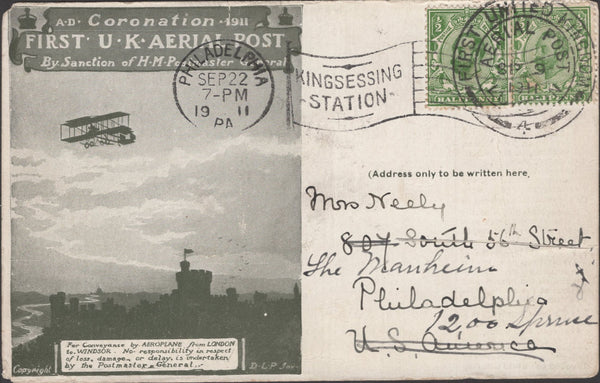 A·D· Coronation · 1911
FIRST · U · K · AERIAL POST
By Sanction of H·M· Postmaster General
PHILADELPHIA
SEP 22
7-PM
19 11
PA.
KINGSESSING
STATION
HALFPENNY
FIRST UNITED KINGDOM
AERIAL POST
(Address only to be written here.
Mrs Neely
807 South 56th Street
The Manheim
Philadelphia
1200 Spruce
U.S. America
For Conveyance by AEROPLANE from LONDON
to WINDSOR. No responsibility in respect
of loss, damage, or delay, is undertaken
by the Postmaster General.
Copyright